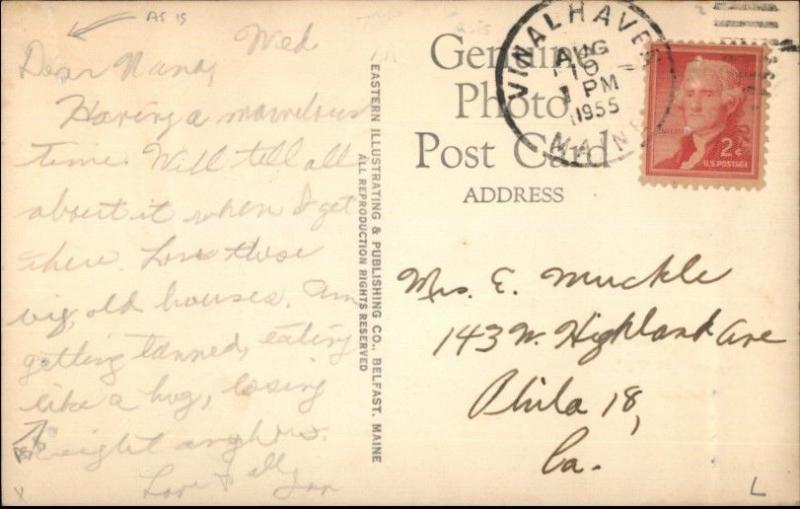 AS IS
Wed
Dear Nana,
Having a marvelous
time. Will tell all
about it when I get
there. Love these
big, old houses. Am
getting tanned, eating
like a hog, losing
weight anyhow.
Love to all
EASTERN ILLUSTRATING & PUBLISHING CO., BELFAST, MAINE
ALL REPRODUCTION RIGHTS RESERVED
Genuine
Photo
Post Card
ADDRESS
VINALHAVEN
AUG
10
PM
1955
MAINE
2¢
U.S. POSTAGE
Mrs. E. Muckle
143 W. Highland Ave
Phila 18,
Pa.
L